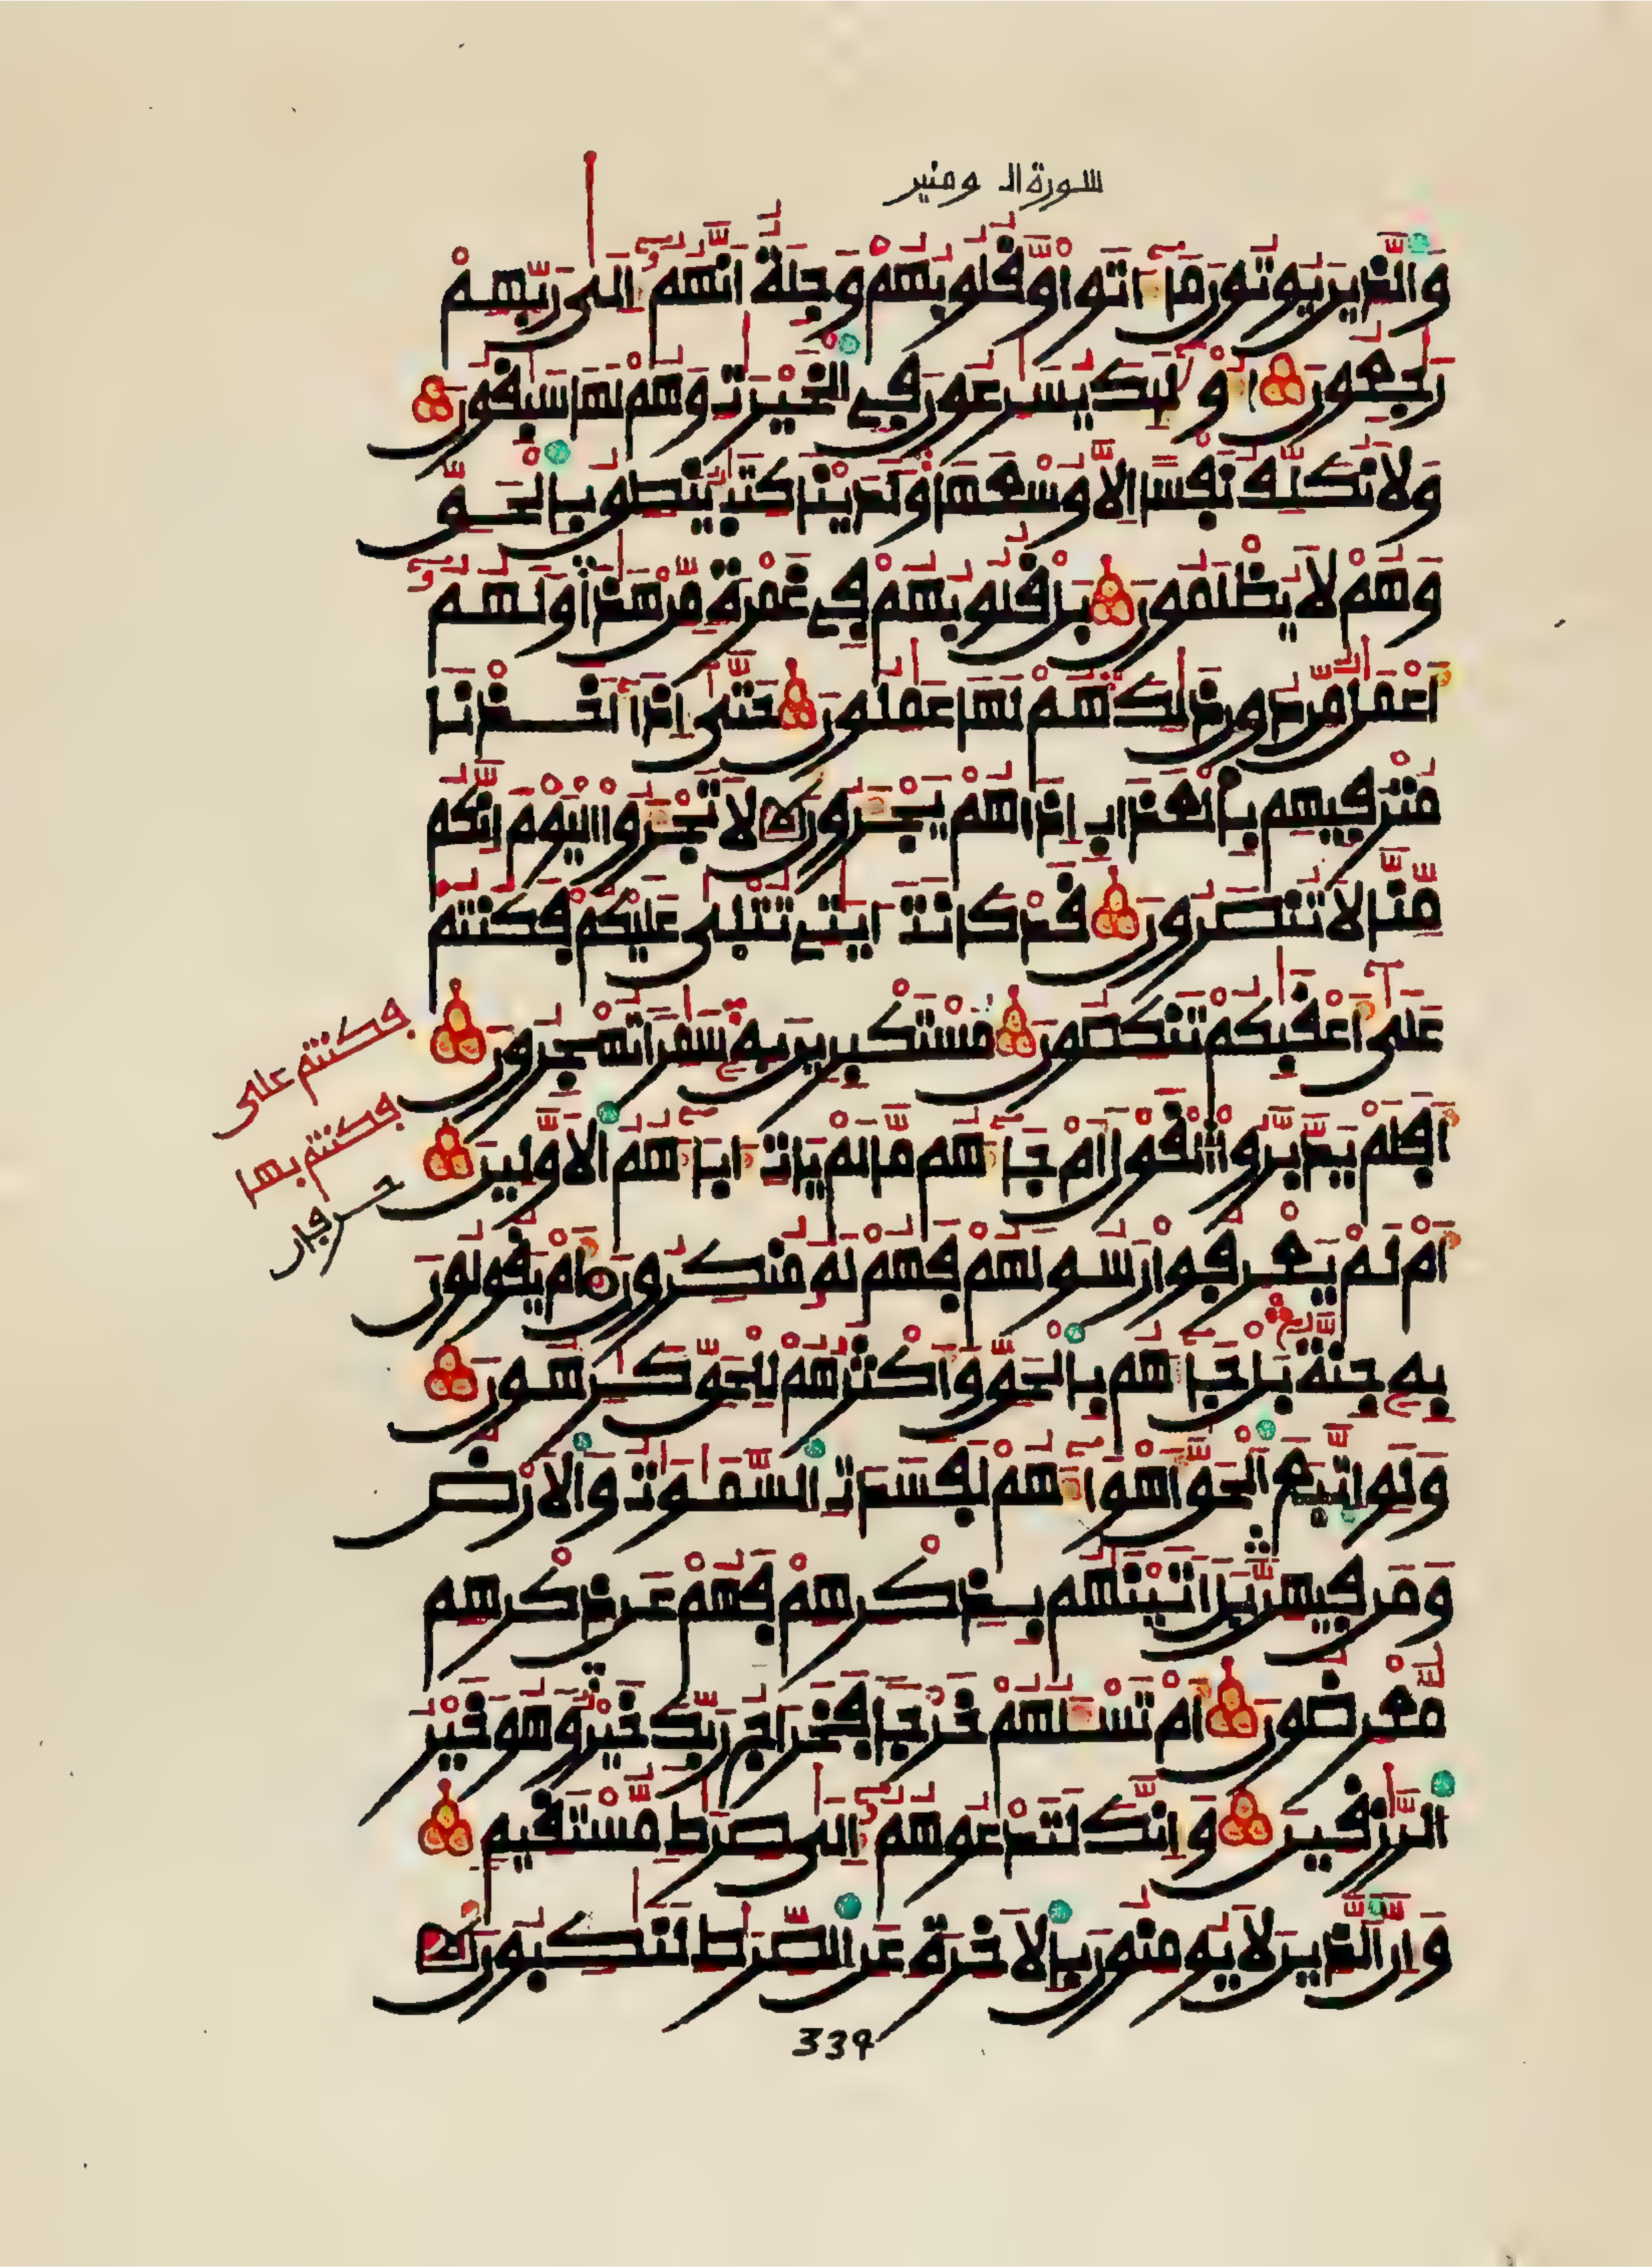 سورة المومنين
وَالَّذِينَ يُوتُونَ مَا ءَاتَوا وَّقُلُوبُهُمْ وَجِلَةٌ اَنَّهُمُ إِلَىٰ رَبِّهِمْ
رَٰجِعُونَ أُوْلَٰئِكَ يُسَٰرِعُونَ فِي الْخَيْرَٰتِ وَهُمْ لَهَا سَٰبِقُونَ
وَلَا نُكَلِّفُ نَفْسًا اِلَّا وُسْعَهَا وَلَدَيْنَا كِتَٰبٌ يَنطِقُ بِالْحَقِّ
وَهُمْ لَا يُظْلَمُونَ بَلْ قُلُوبُهُمْ فِي غَمْرَةٍ مِّنْ هَٰذَا وَلَهُمُ
أَعْمَٰلٌ مِّن دُونِ ذَٰلِكَ هُمْ لَهَا عَٰمِلُونَ حَتَّىٰ إِذَا أَخَذْنَا
مُتْرَفِيهِم بِالْعَذَابِ إِذَا هُمْ يَجْـَٔرُونَ لَا تَجْـَٔرُوا الْيَوْمَ إِنَّكُم
مِّنَّا لَا تُنصَرُونَ قَدْ كَانَتَ ايَٰتِي تُتْلَىٰ عَلَيْكُمْ فَكُنتُمُ
عَلَىٰ أَعْقَٰبِكُمْ تَنكِصُونَ مُسْتَكْبِرِينَ بِهِ سَٰمِرًا تُهْجِرُونَ
أَفَلَمْ يَدَّبَّرُوا الْقَوْلَ أَمْ جَاءَهُم مَّا لَمْ يَاتِ ءَابَاءَهُمُ الَاوَّلِينَ
أَمْ لَمْ يَعْرِفُوا رَسُولَهُمْ فَهُمْ لَهُ مُنكِرُونَ أَمْ يَقُولُونَ
بِهِ جِنَّةٌ بَلْ جَاءَهُم بِالْحَقِّ وَأَكْثَرُهُمْ لِلْحَقِّ كَٰرِهُونَ
وَلَوِ اتَّبَعَ الْحَقُّ أَهْوَاءَهُمْ لَفَسَدَتِ السَّمَٰوَٰتُ وَالَارْضُ
وَمَن فِيهِنَّ بَلَ اتَيْنَٰهُم بِذِكْرِهِمْ فَهُمْ عَن ذِكْرِهِم
مُّعْرِضُونَ أَمْ تَسْـَٔلُهُمْ خَرْجًا فَخَرَاجُ رَبِّكَ خَيْرٌ وَهُوَ خَيْرُ
الرَّٰزِقِينَ وَإِنَّكَ لَتَدْعُوهُمُ إِلَىٰ صِرَٰطٍ مُّسْتَقِيمٍ
وَإِنَّ الَّذِينَ لَا يُومِنُونَ بِالَاخِرَةِ عَنِ الصِّرَٰطِ لَنَٰكِبُونَ
فكنتم على
فكنتم بها
339